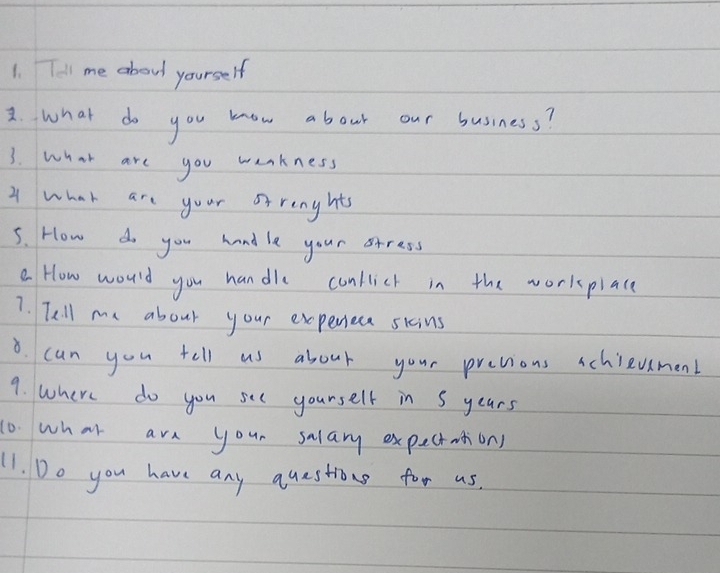 1. Tell me about yourself
2. What do you know about our business?
3. What are you weakness
4 What are your strenghts
5. How do you handle your stress
6 How would you handle conflict in the workplace
7. Tell me about your experiece skins
8. Can you tell us about your previous achievement
9. Where do you see yourself in 5 years
10. What are your salary expectations
11. Do you have any questions for us.